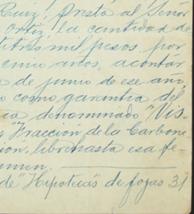 Ruiz, presta al Señor
Ortiz la cantidad de
titres mil pesos, por
enio años, acontar
a de junio de ese año
o como garantia del
ca denominado "Vis-
s "Fraccion de la Carbone
cion, libre hasta esa fe-
umen.
de "Hipotecas" de fojas 37